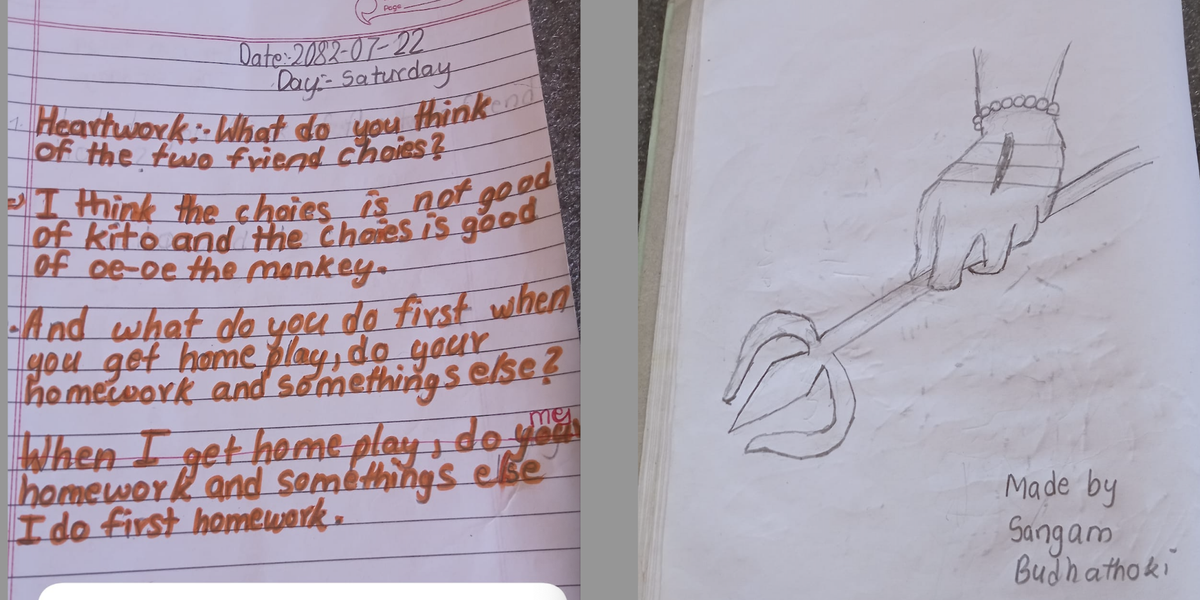 Page
Date:-2082-07-22
Day:- Saturday
1. Heartwork:- What do you think
of the two friend choies?
I think the choies is not good
of kito and the choies is good
of oe-oe the monkey.
And what do you do first when
you get home play, do your
homework and somethings else?
my
When I get home play, do your
homework and somethings else
I do first homework.
Made by
Sangam
Budhathoki